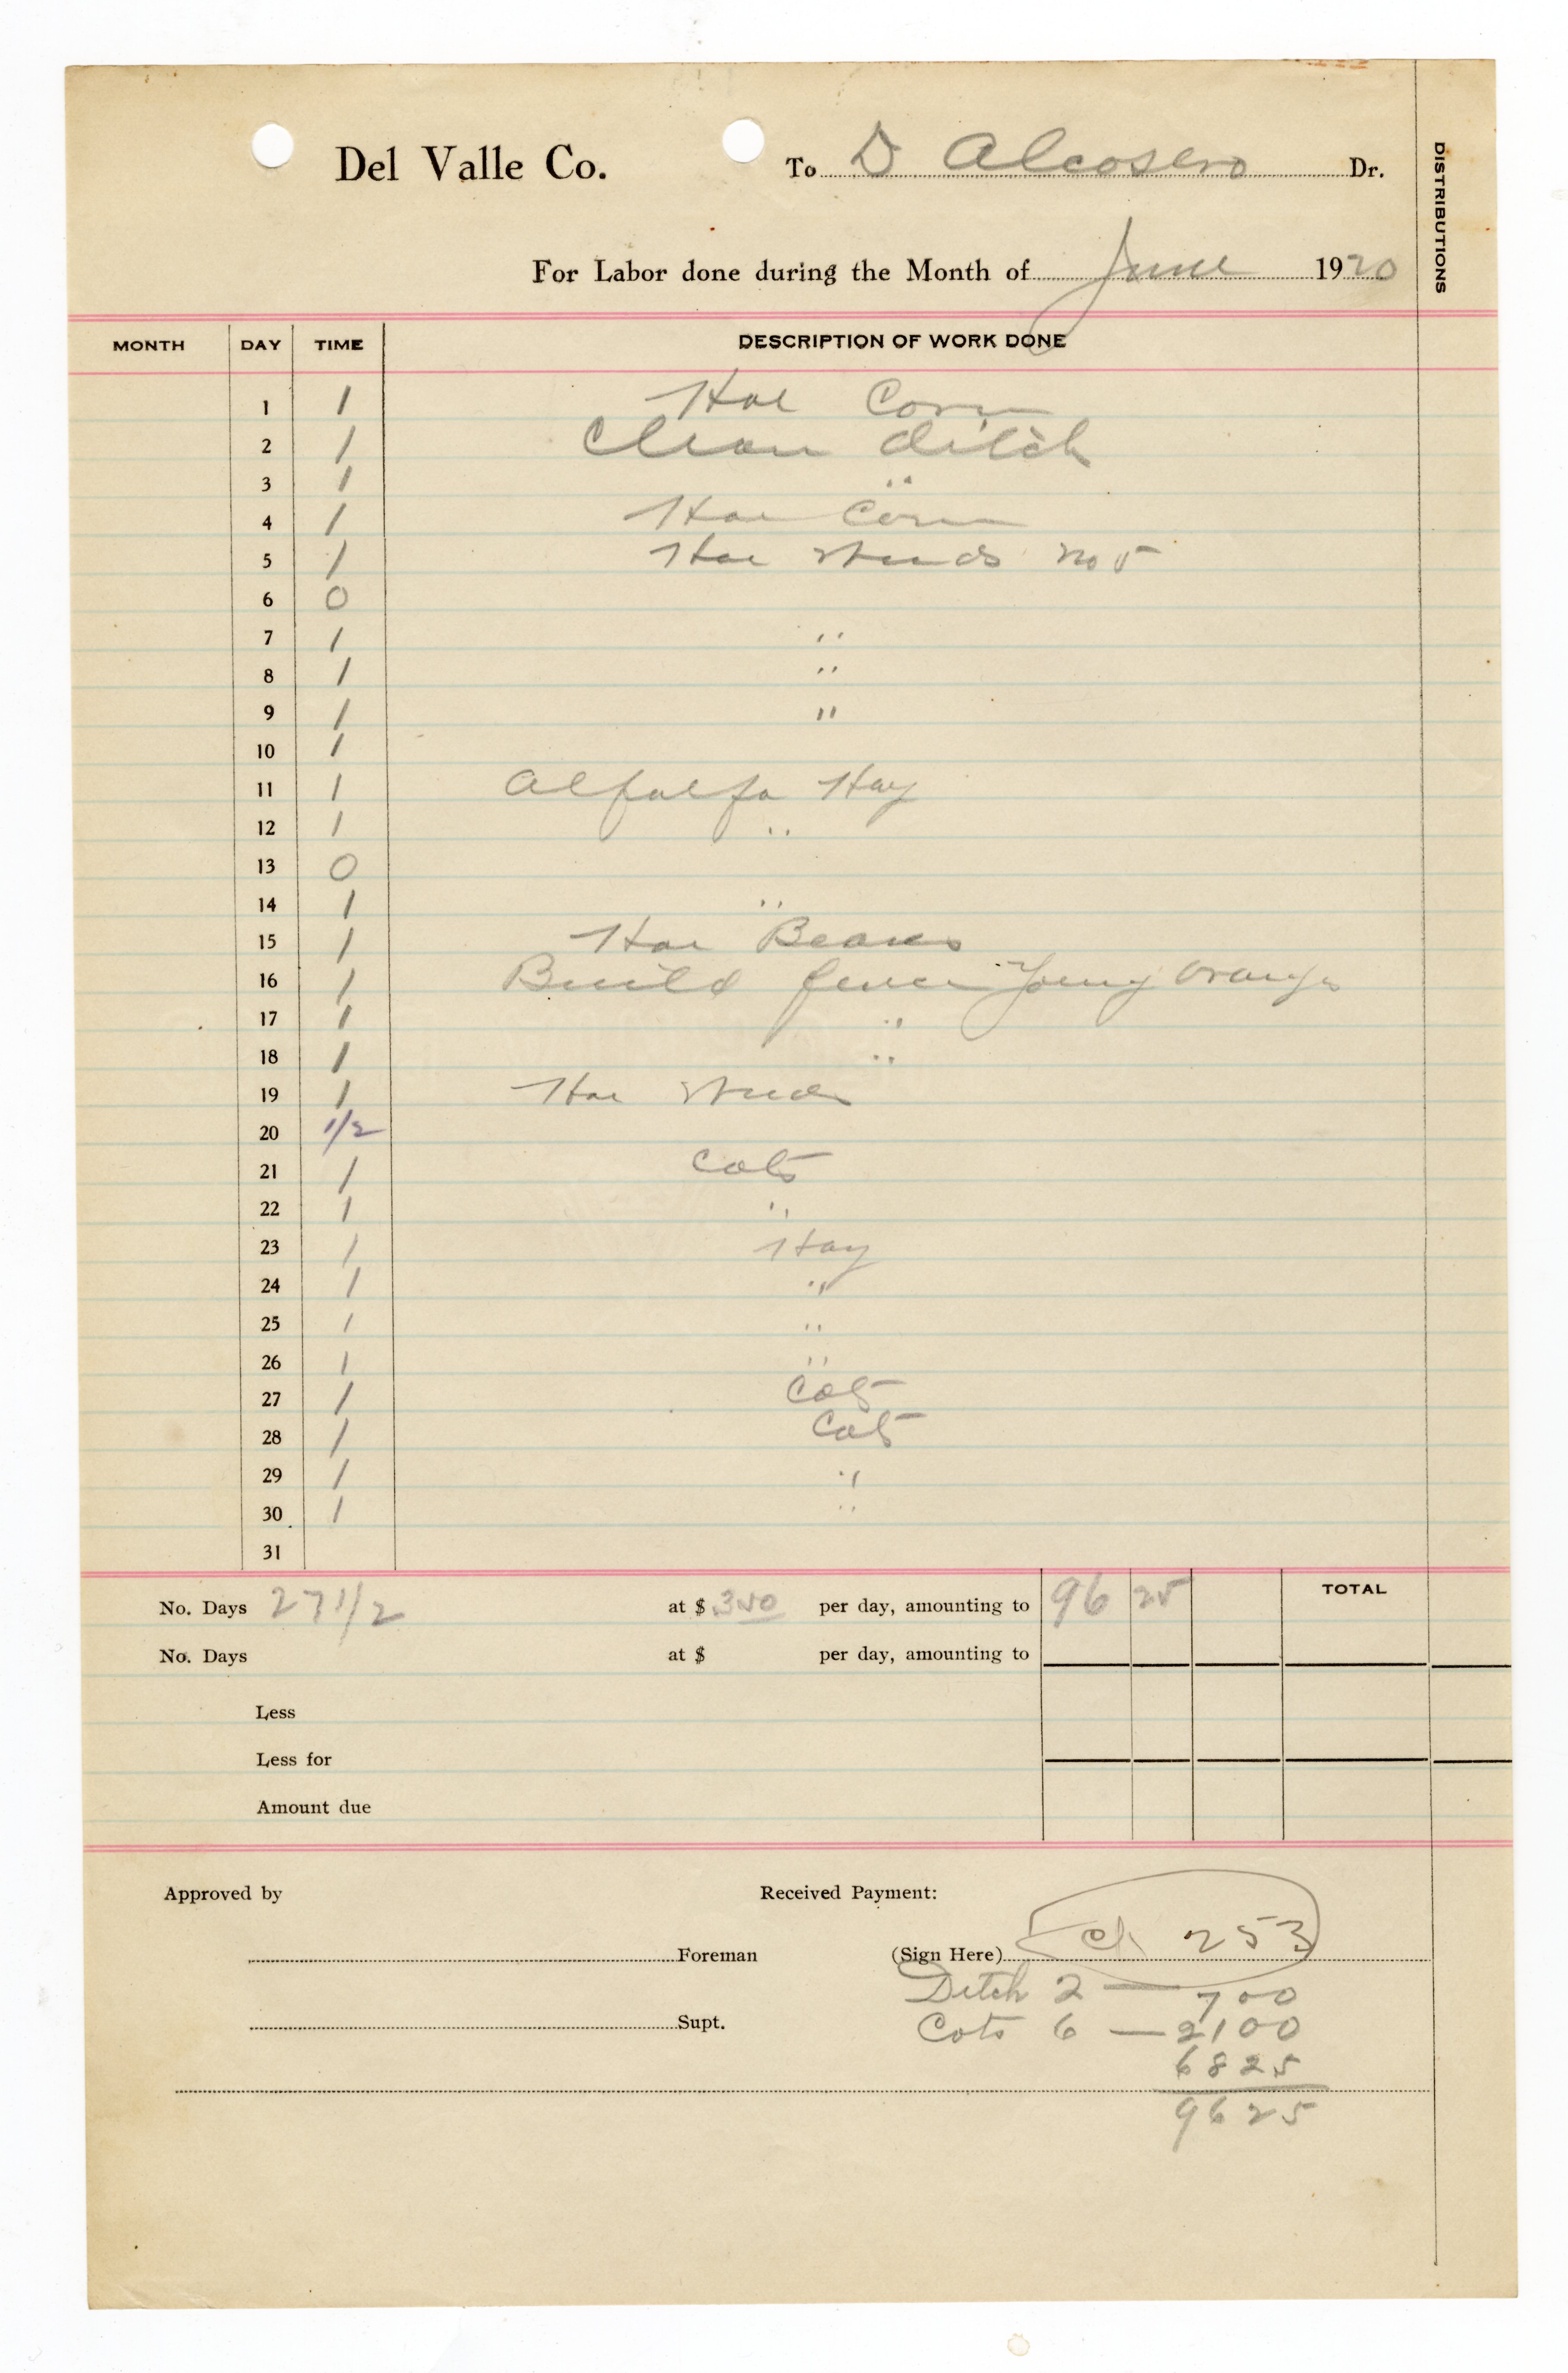 Del Valle Co. To D Alcosero Dr.
DISTRIBUTIONS
For Labor done during the Month of June 1920
MONTH DAY TIME DESCRIPTION OF WORK DONE
1 1 Hoe Corn
2 1 Clean ditch
3 1 "
4 1 Hoe Corn
5 1 Hoe Weeds No 5
6 0
7 1 "
8 1 "
9 1 "
10 1
11 1 Alfalfa Hay
12 1 "
13 0
14 1 "
15 1 Hoe Beans
16 1 Build fence Young Oranges
17 1 "
18 1 "
19 1 Hoe Weeds
20 1/2
21 1 Cots
22 1 "
23 1 Hay
24 1 "
25 1 "
26 1 "
27 1 Cots
28 1 Cots
29 1 "
30 1 "
31
No. Days 27 1/2 at $ 350 per day, amounting to 96 25 TOTAL
No. Days at $ per day, amounting to
Less
Less for
Amount due
Approved by Received Payment:
Foreman (Sign Here) Ck 253
Ditch 2 — 700
Supt. Cots 6 — 2100
6825
9625